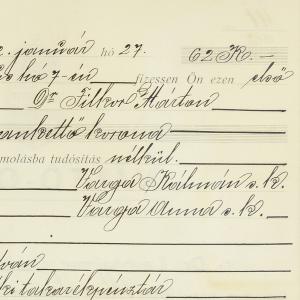 2. január hó 27. 62 K. –
hó 7-én fizessen Ön ezen első
Dr Filkor Márton
vankettő korona
molásba tudósítás nélkül.
Varga Kálmán s. k.
Varga Anna s. k.
ván
ki takarékpénztár